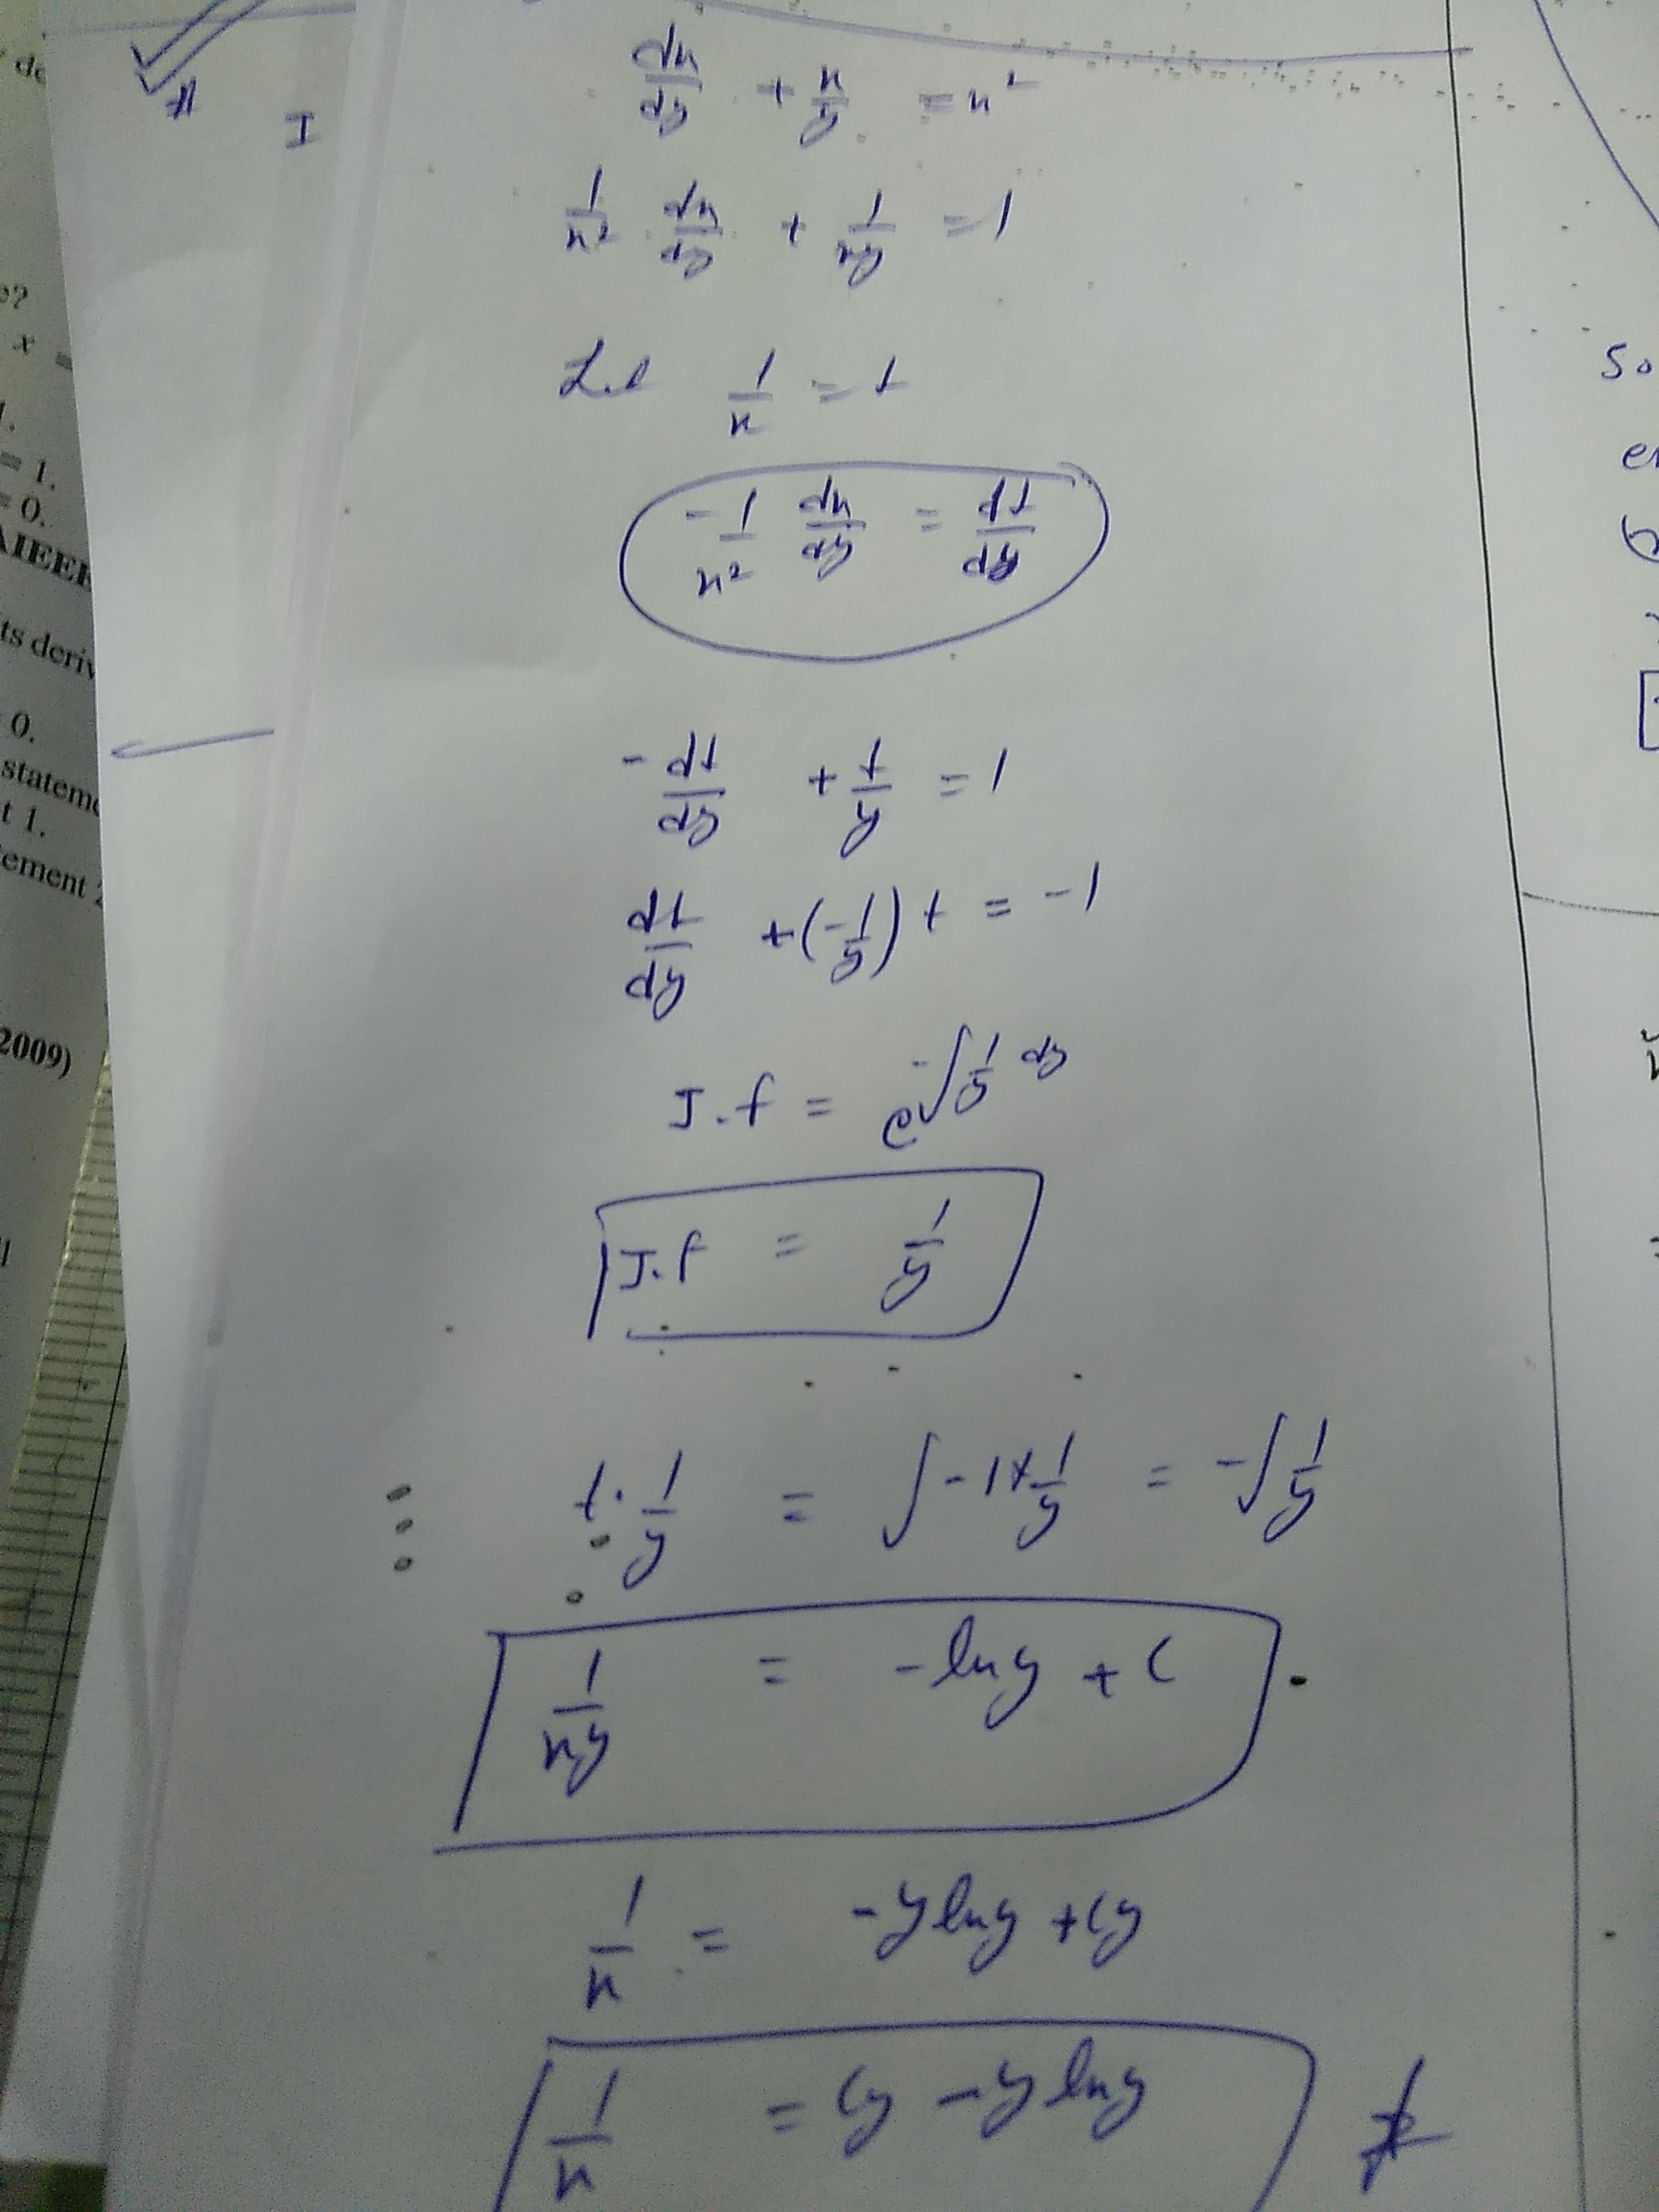 dx/dy + x/y = x²
1/x² · dx/dy + 1/xy = 1
Let 1/x = t
-1/x² dx/dy = dt/dy
-dt/dy + t/y = 1
dt/dy + (-1/y) t = -1
I.f = e^-∫1/y dy
I.f = 1/y
t · 1/y = ∫ -1 × 1/y = -∫ 1/y
1/xy = -ln y + C
1/x = -y ln y + Cy
1/x = Cy - y ln y
de
e?
x =
1.
= 1.
= 0.
AIEEE
its deriv
0.
stateme
t 1.
tement 2
2009)
I
So